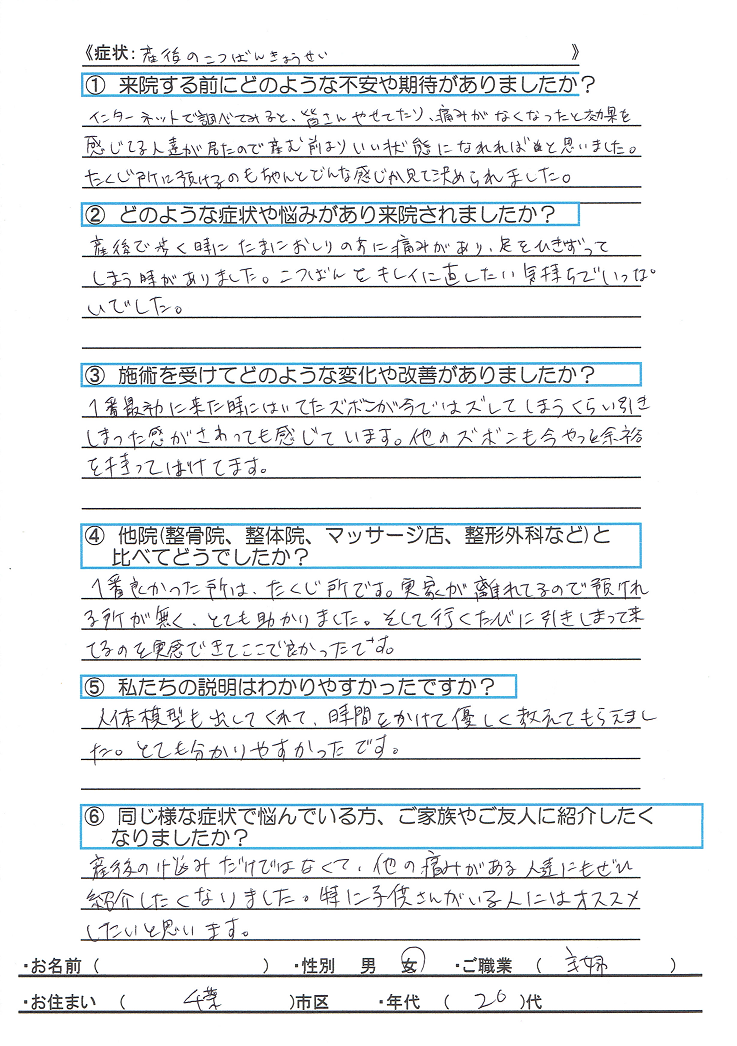 《症状: 産後のこつばんきょうせい 》
① 来院する前にどのような不安や期待がありましたか？
インターネットで調べてみると、皆さんやせてたり、痛みがなくなったと効果を
感じてる人達が居たので産む前よりいい状態になれればなと思いました。
たくじ所に預けるのもちゃんとどんな感じか見て決められました。
② どのような症状や悩みがあり来院されましたか？
産後で歩く時にたまにおしりの方に痛みがあり、足をひきずって
しまう時がありました。こつばんをキレイに直したい気持ちでいっぱ
いでした。
③ 施術を受けてどのような変化や改善がありましたか？
1番最初に来た時にはいてたズボンが今ではズレてしまうくらい引き
しまった感がさわっても感じています。他のズボンも今やっと余裕
を持ってはけてます。
④ 他院(整骨院、整体院、マッサージ店、整形外科など)と
比べてどうでしたか？
1番良かった所は、たくじ所です。実家が離れてるので預けれ
る所が無く、とても助かりました。そして行くたびに引きしまって来
てるのを実感できてここで良かったです。
⑤ 私たちの説明はわかりやすかったですか？
人体模型も出してくれて、時間をかけて優しく教えてもらえまし
た。とても分かりやすかったです。
⑥ 同じ様な症状で悩んでいる方、ご家族やご友人に紹介したく
なりましたか？
産後の悩みだけではなくて、他の痛みがある人達にもぜひ
紹介したくなりました。特に子供さんがいる人にはオススメ
したいと思います。
・お名前 ( ) ・性別 男 女 ・ご職業 ( 主婦 )
・お住まい ( 千葉 )市区 ・年代 ( 20 )代